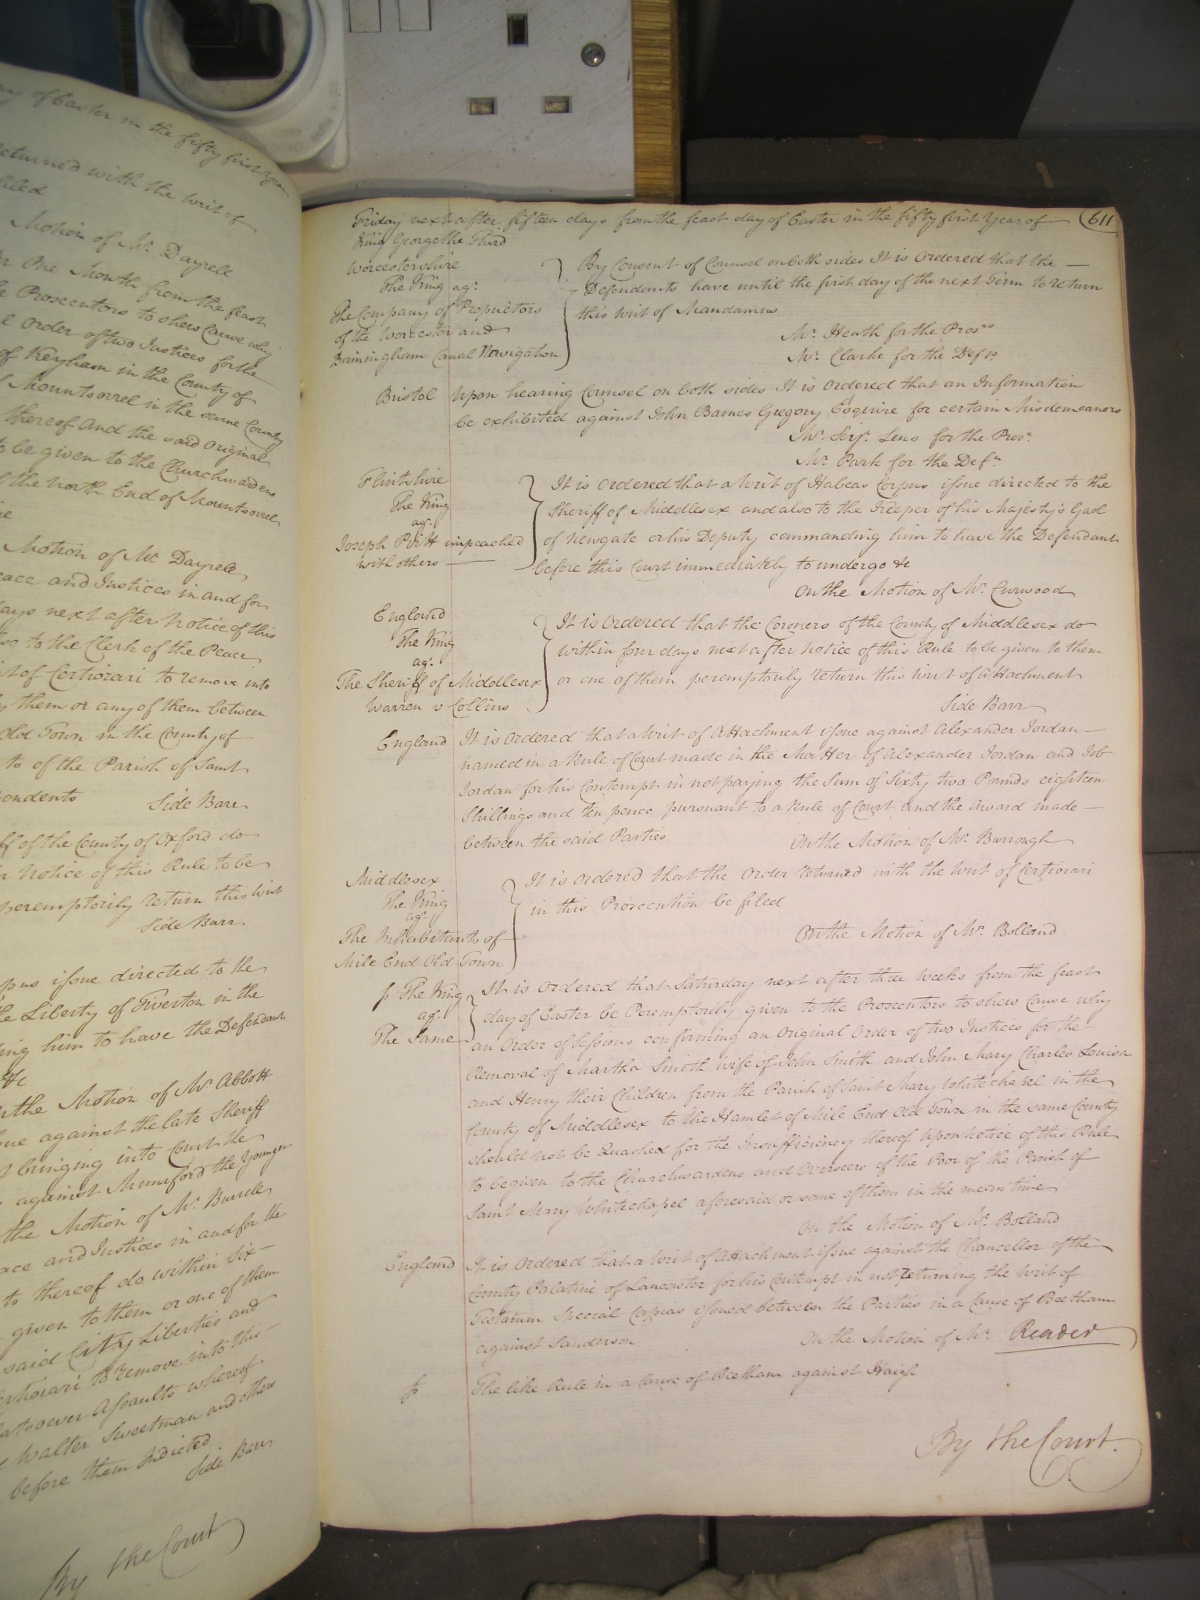 ay of Easter in the fifty first year
returned with the writ of
filed
Motion of Mr. Dayrell
One Month from the feast
Prosecutors to shew Cause why
Order of two Justices for the
of Keyham in the County of
Mountsorrel in the same County
thereof And the said Original
to be given to the Churchwardens
the North End of Mountsorrel
Motion of Mr. Dayrell
eace and Justices in and for
days next after Notice of this
also to the Clerk of the Peace
it of Certiorari to remove into
them or any of them between
Old Town in the County of
ts of the Parish of Saint
pondents Side Barr
ff of the County of Oxford do
Notice of this Rule to be
peremptorily return this writ
Side Barr
pus issue directed to the
the Liberty of Tiverton in the
ding him to have the Defendant
&c
the Motion of Mr. Abbott
issue against the late Sheriff
bringing into Court the
against Mumford the Younger
the Motion of Mr. Burrell
eace and Justices in and for the
ts thereof do within Six
given to them or one of them
said City Liberties and
ertiorari to remove into this
whatsoever Assaults whereof
Walter Sweetman and others
before them Indicted
Side Barr
By the Court
Friday next after fifteen days from the feast day of Easter in the fifty first Year of 611
King George the Third
Worcestershire
The King agt.
The Company of Proprietors
of the Worcester and
Birmingham Canal Navigation
By Consent of Counsel on both sides It is Ordered that the
Defendants have until the first day of the next Term to return
this writ of Mandamus
Mr. Heath for the Prosrs
Mr. Clarke for the Defts.
Bristol Upon hearing Counsel on both sides It is Ordered that an Information
be exhibited against John Barnes Gregory Esquire for certain Misdemeanors
Mr. Serjt. Lens for the Prosr.
Mr. Park for the Deft.
Flintshire
The King
agt.
Joseph Pitt impeached
with others
It is Ordered that a Writ of Habeas Corpus issue directed to the
Sheriff of Middlesex and also to the Keeper of his Majesty's Gaol
of Newgate or his Deputy commanding him to have the Defendant
before this Court immediately to undergo &c
On the Motion of Mr. Curwood
England
The King
agt.
The Sheriff of Middlesex
Warren v Collins
It is Ordered that the Coroners of the County of Middlesex do
within four days next after notice of this Rule to be given to them
or one of them peremptorily return this writ of Attachment
Side Barr
England It is Ordered that a Writ of Attachment issue against Alexander Jordan
named in a Rule of Court made in the Matter of Alexander Jordan and Job
Jordan for his Contempt in not paying the Sum of Sixty two Pounds eighteen
Shillings and ten pence pursuant to a Rule of Court and the Award made
between the said Parties On the Motion of Mr. Burrough
Middlesex
The King
agt.
The Inhabitants of
Mile End Old Town
It is Ordered that the Order returned with the Writ of Certiorari
in this Prosecution be filed
On the Motion of Mr. Bolland
The King
agt.
The Same
It is Ordered that Saturday next after three weeks from the feast
day of Easter be Peremptorily given to the Prosecutors to shew Cause why
an Order of Sessions confirming an Original Order of two Justices for the
Removal of Martha Smith wife of John Smith and John Mary Charles Louisa
and Henry their Children from the Parish of Saint Mary Whitechapel in the
County of Middlesex to the Hamlet of Mile End Old Town in the same County
should not be Quashed for the Insufficiency thereof Upon Notice of this Rule
to be given to the Churchwardens and Overseers of the Poor of the Parish of
Saint Mary Whitechapel aforesaid or some of them in the mean time
On the Motion of Mr. Bolland
England It is Ordered that a Writ of Attachment issue against the Chancellor of the
County Palatine of Lancaster for his Contempt in not returning the Writ of
Testatum Special Capias issued between the Parties in a Cause of Beetham
against Sanderson On the Motion of Mr. Reader
The like Rule in a Cause of Beetham against Haigh
By the Court.